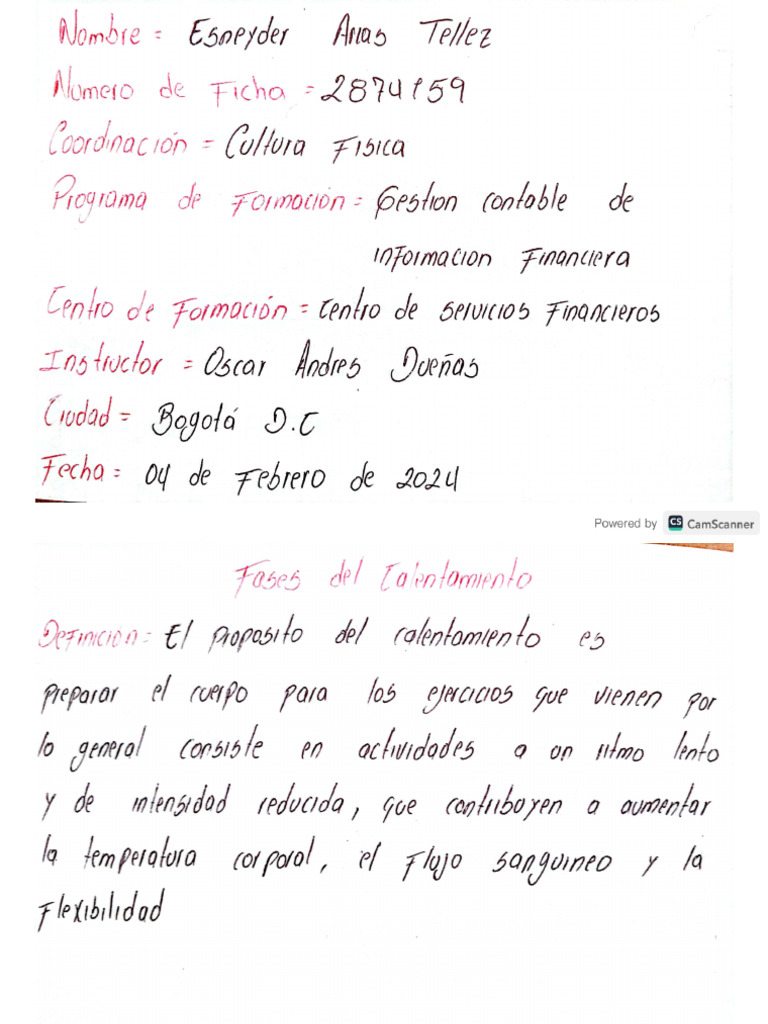 Nombre = Esneyder Arias Tellez
Numero de Ficha = 2874159
Coordinación = Cultura Fisica
Programa de Formación = Gestion contable de
informacion Financiera
Centro de Formación = Centro de servicios Financieros
Instructor = Oscar Andres Dueñas
Ciudad = Bogotá D.C
Fecha = 04 de Febrero de 2024
Powered by CS CamScanner
Fases del Calentamiento
Definicion = El proposito del calentamiento es
preparar el cuerpo para los ejercicios que vienen por
lo general consiste en actividades a un ritmo lento
y de intensidad reducida, que contribuyen a aumentar
la temperatura corporal, el flujo sanguineo y la
flexibilidad